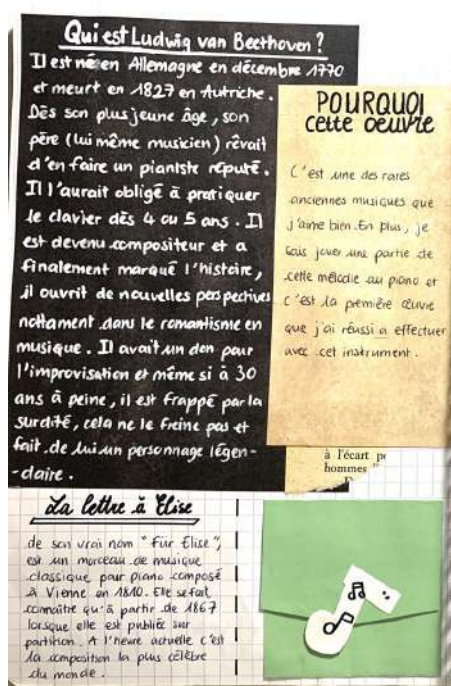 Qui est Ludwig van Beethoven ?
Il est né en Allemagne en décembre 1770
et meurt en 1827 en Autriche.
Dès son plus jeune âge, son
père (lui même musicien) rêvait
d'en faire un pianiste réputé.
Il l'aurait obligé à pratiquer
le clavier dès 4 ou 5 ans. Il
est devenu compositeur et a
finalement marqué l'histoire,
il ouvrit de nouvelles perspectives
nottament dans le romantisme en
musique. Il avait un don pour
l'improvisation et même si à 30
ans à peine, il est frappé par la
surdité, cela ne le freine pas et
fait de lui un personnage légen-
-daire.
POURQUOI
cette oeuvre
C'est une des rares
anciennes musiques que
j'aime bien. En plus, je
sais jouer une partie de
cette mélodie au piano et
c'est la première œuvre
que j'ai réussi a effectuer
avec cet instrument.
à l'écart
hommes
La lettre à Elise
de son vrai nom "Für Elise",
est un morceau de musique
classique pour piano composé
à Vienne en 1810. Elle se fait
connaître qu'à partir de 1867
lorsque elle est publiée sur
partition. A l'heure actuelle c'est
la composition la plus célèbre
du monde.